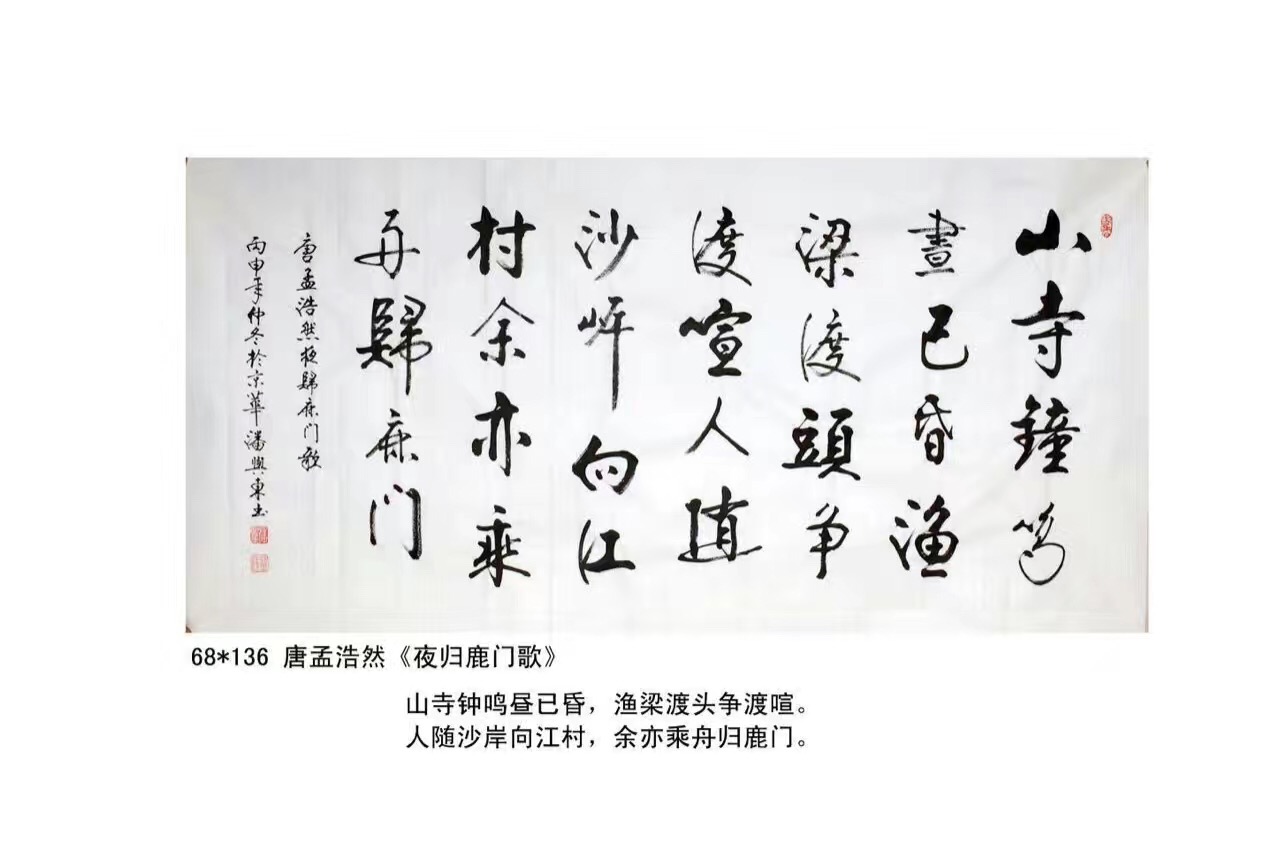 山寺鐘鳴
晝已昏漁
梁渡頭争
渡喧人随
沙岸向江
村余亦乘
舟歸鹿门
唐孟浩然夜歸鹿门歌
丙申年仲冬於京華潘興東书
68*136 唐孟浩然《夜归鹿门歌》
山寺钟鸣昼已昏，渔梁渡头争渡喧。
人随沙岸向江村，余亦乘舟归鹿门。